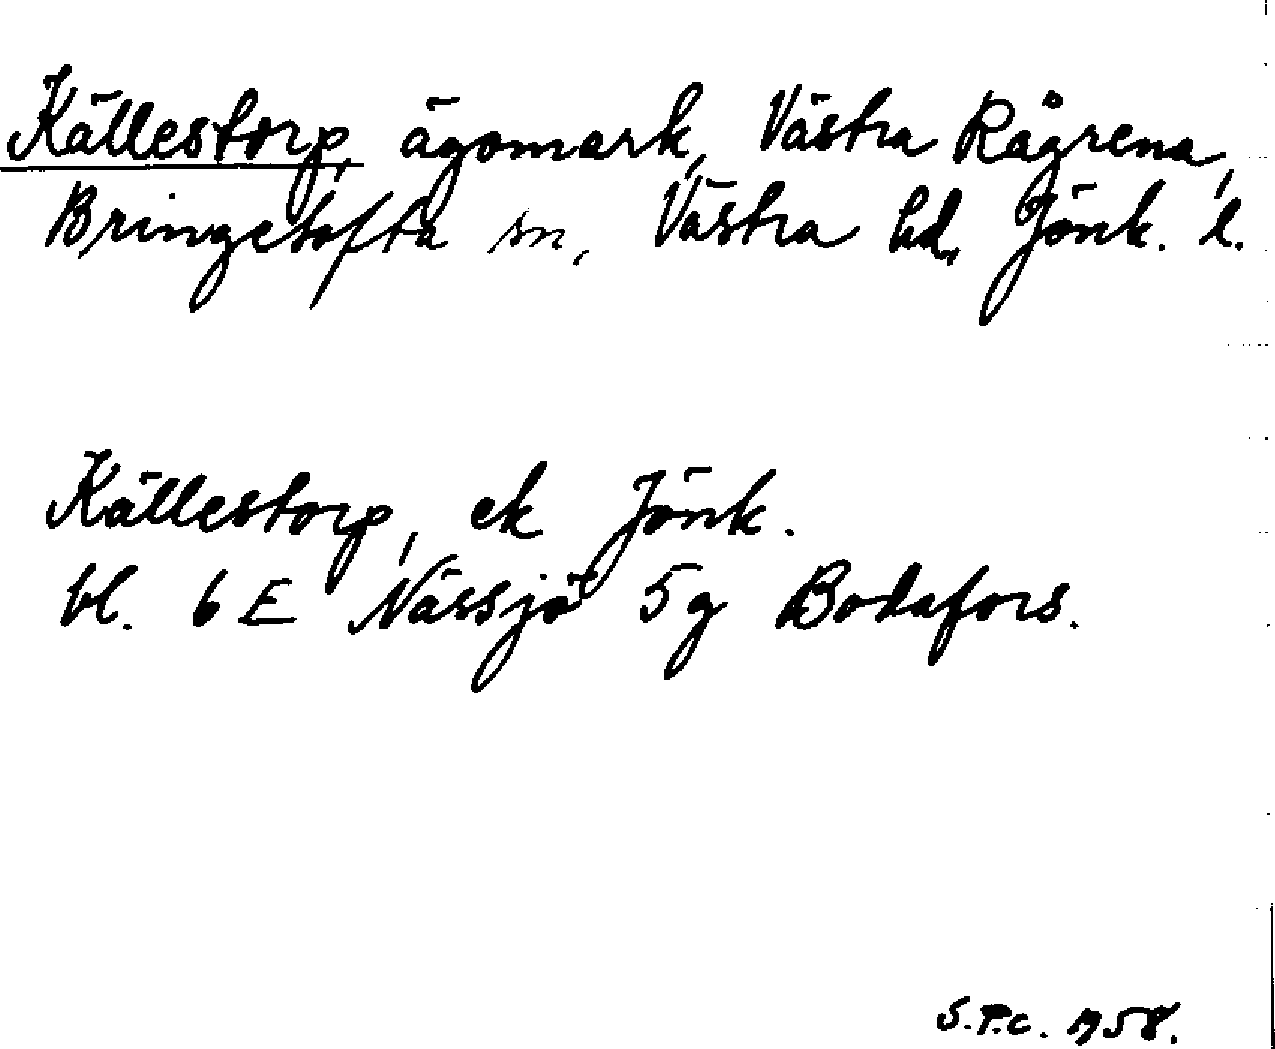 Källestorp, ägomark, Västra Rågrena,
Bringetofta sn, Västra hd, Jönk. l.
Källestorp, ek Jönk.
bl. 6 E Nässjö 5 g Bodafors.
S.P.C. 1958.